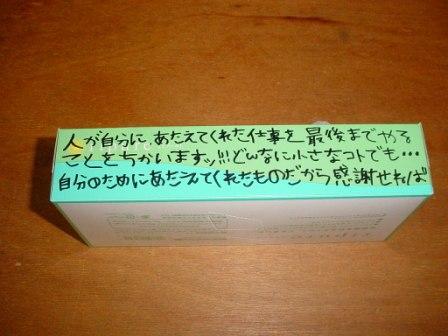 人が自分に あたえてくれた仕事を 最後までやる
ことをちかいますッ!!!どんなに小さなコトでも…
自分のためにあたえてくれたものだから感謝せねば